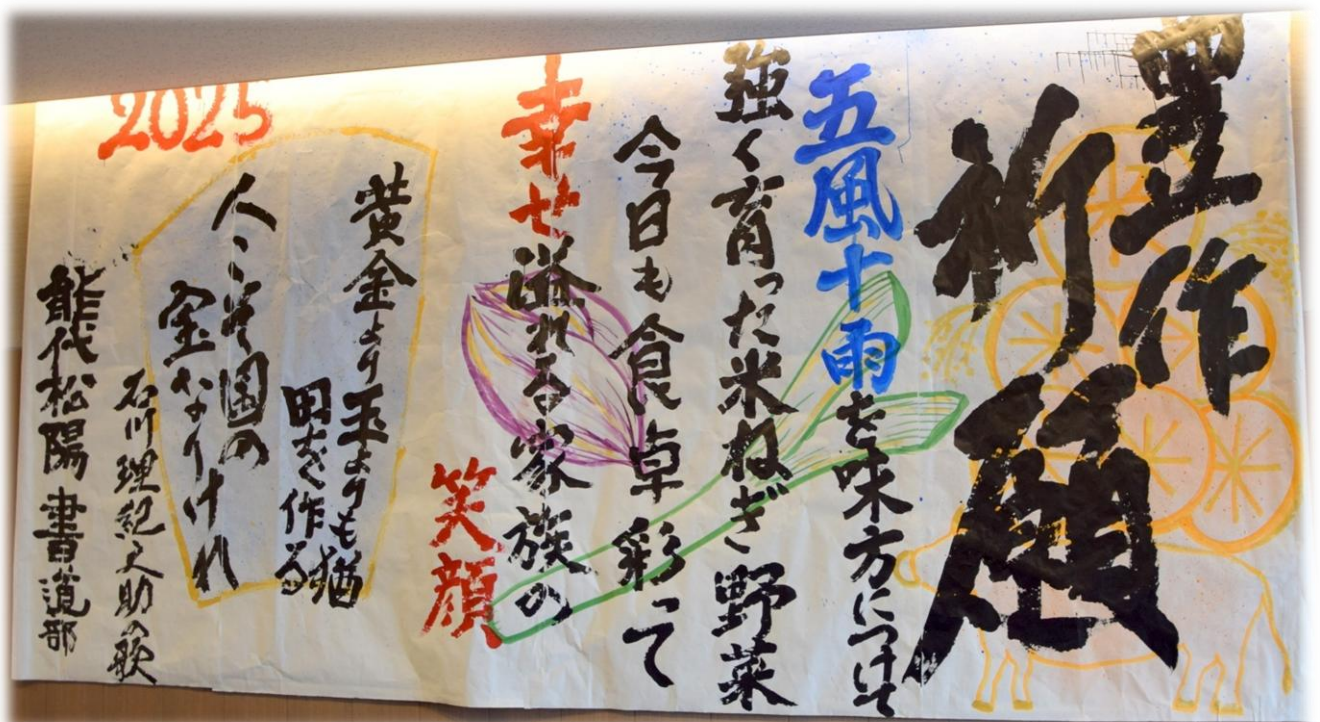 豊作
祈願
五風十雨を味方につけて
強く育った米ねぎ野菜
今日も食卓彩って
幸せ溢れる家族の
笑顔
黄金より玉よりも猶
田を作る
人こそ国の
宝なりけれ
石川理紀之助の歌
2025
能代松陽書道部